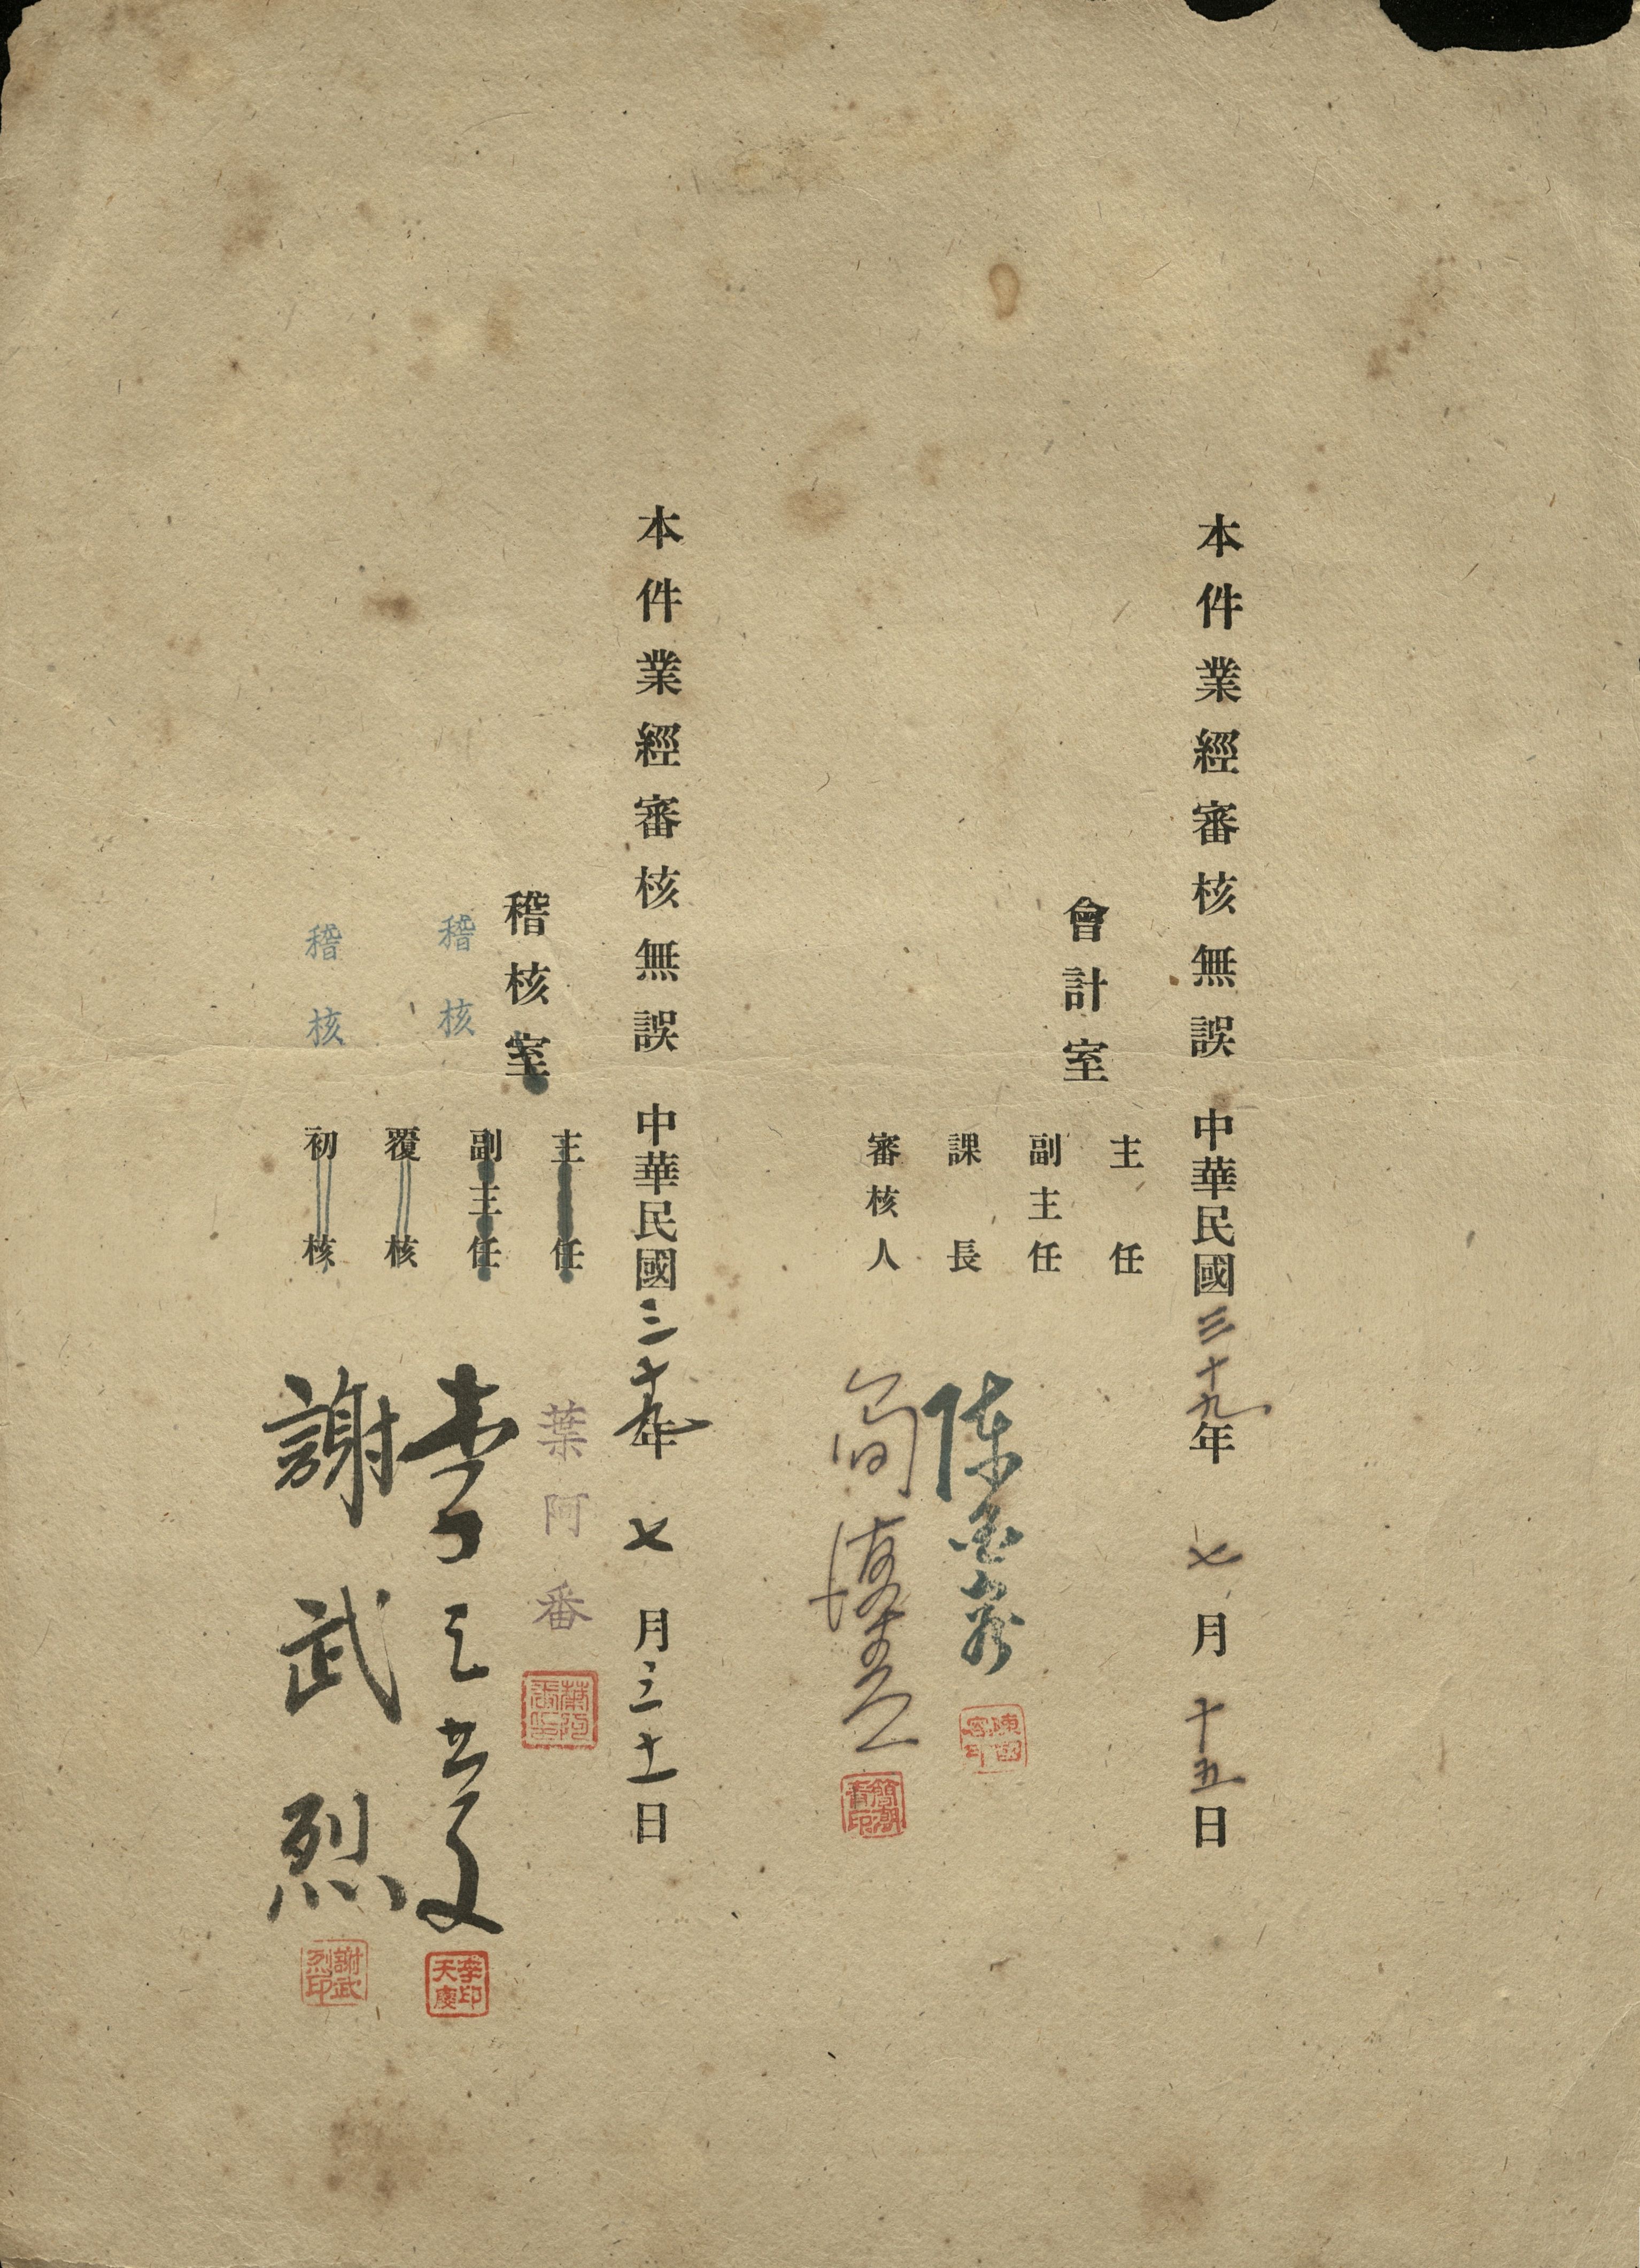 本件業經審核無誤 中華民國三十九年 七月十五日
會計室
主任
副主任
課長 陳
審核人 簡
簡潮青印
本件業經審核無誤 中華民國三十九年 七月三十一日
稽核室
主任 葉阿番
副主任
稽核
覆核 李
李印天慶
稽核
初核 謝武烈
謝武烈印